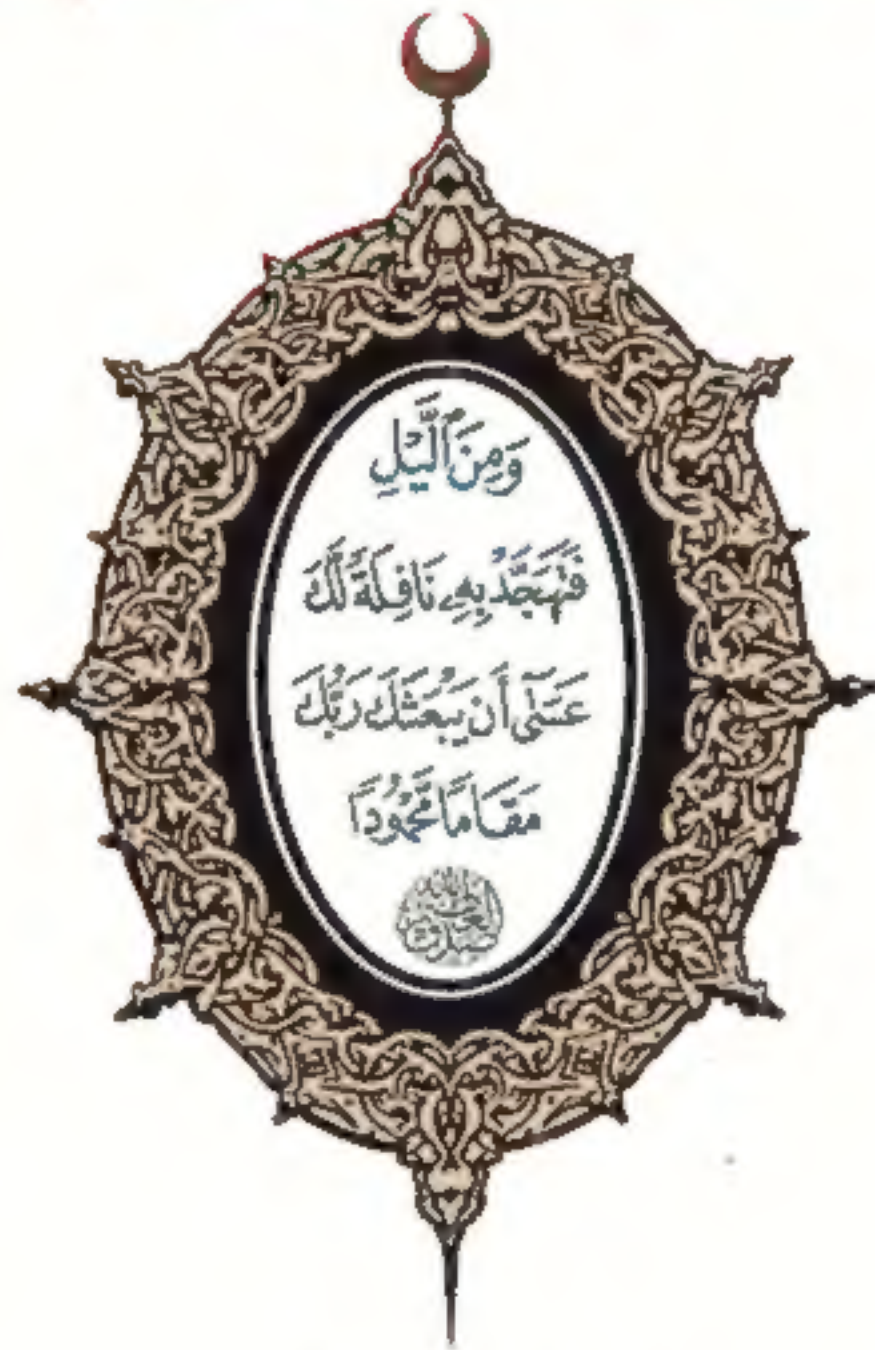 وَمِنَ ٱلَّيْلِ
فَتَهَجَّدْ بِهِۦ نَافِلَةً لَّكَ
عَسَىٰٓ أَن يَبْعَثَكَ رَبُّكَ
مَقَامًا مَّحْمُودًا
صدق الله العظيم